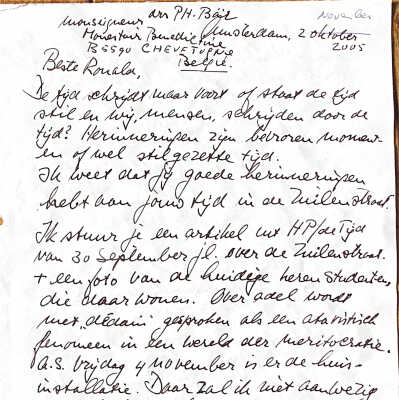 Monseigneur van PH. Bär
November
Monasteur Benedictine Amsterdam, 2 oktober
B5590 CHEVETOGNE 2005
België.
Beste Ronald,
De tijd schrijdt maar voort of staat de tijd
stil en wij, mensen, schrijden door de
tijd? Herinneringen zijn bevroren momen-
en of wel stilgezette tijd.
Ik weet dat jij goede herinneringen
hebt aan jouw tijd in de Zuilenstraat.
Ik stuur je een artikel uit HP/de Tijd
van 30 September jl. over de Zuilenstraat.
+ een foto van de huidige heren Studenten,
die daar wonen. Over adel wordt
met "dédain" gesproken als een atavistisch
fenomeen in een wereld der meritocratie.
A.S. vrijdag 4 november is er de huis-
installatie. Daar zal ik niet aanwezig